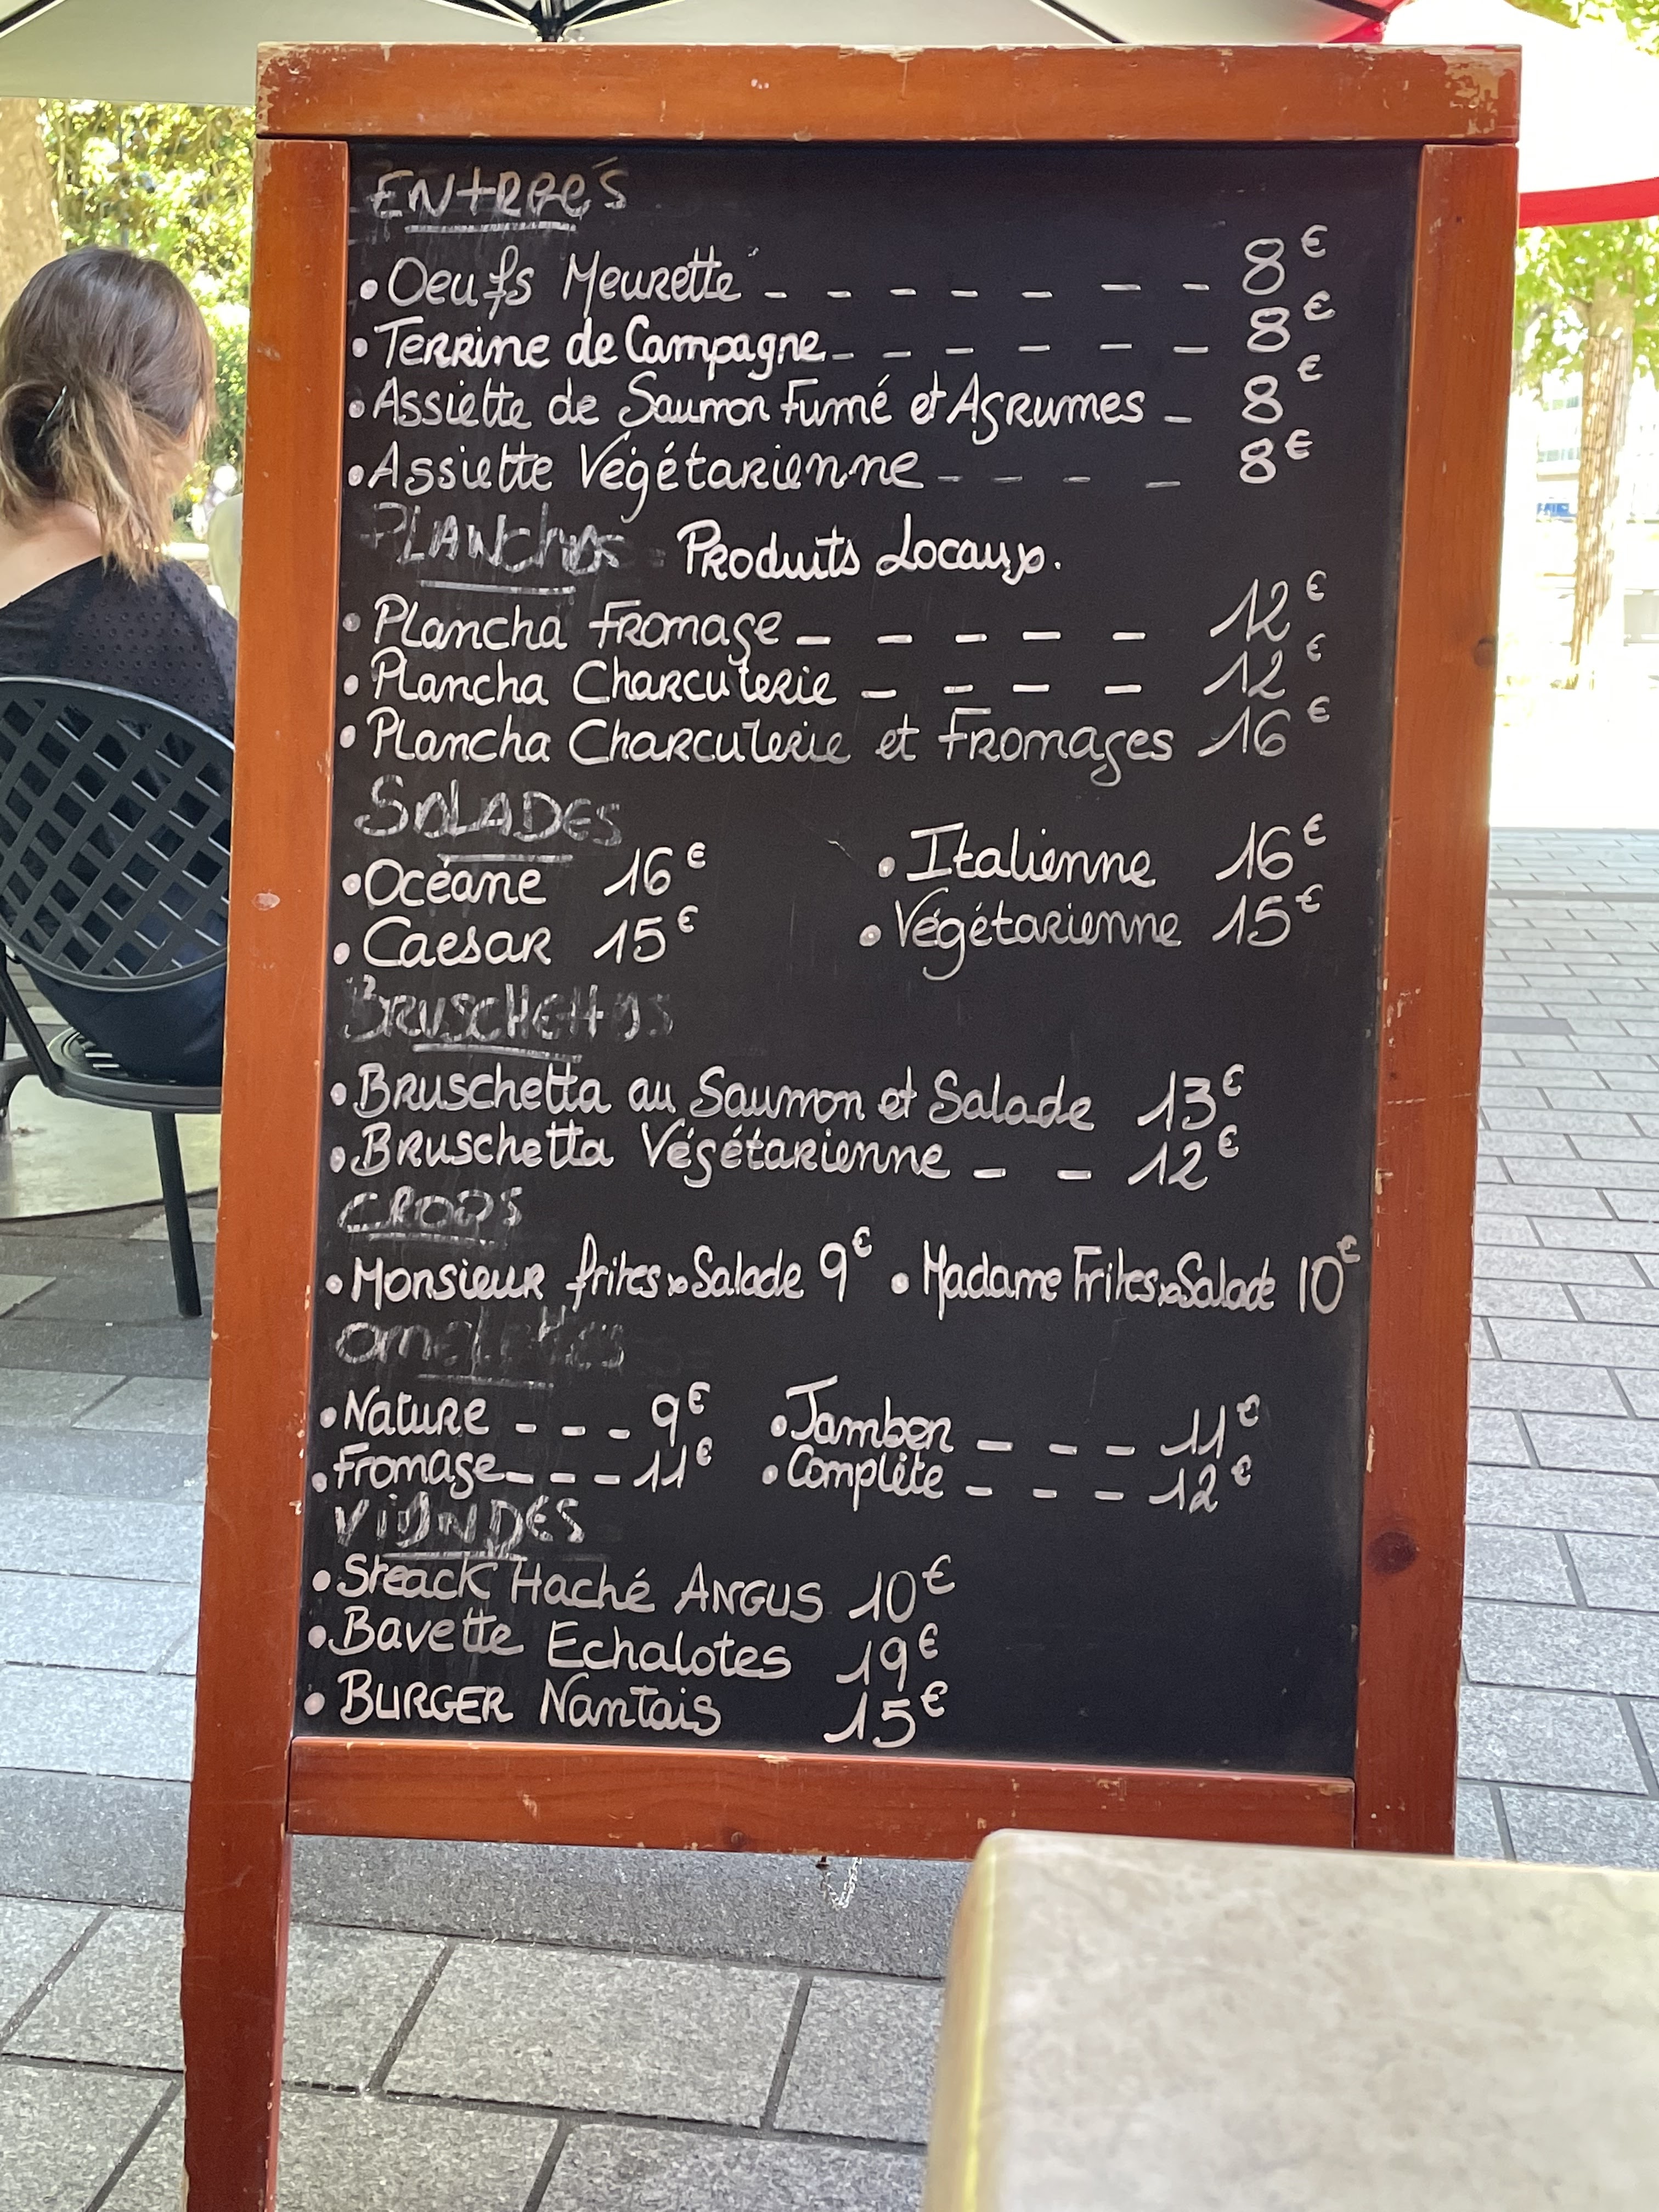 ENTREES
• Oeufs Meurette - - - - - - - 8€
• Terrine de Campagne - - - - - - 8€
• Assiette de Saumon Fumé et Agrumes - 8€
• Assiette Végétarienne - - - - 8€
PLANCHAS = Produits Locaux.
• Plancha Fromage - - - - - 12€
• Plancha Charcuterie - - - - 12€
• Plancha Charcuterie et Fromages 16€
SALADES
• Océane 16€ • Italienne 16€
• Caesar 15€ • Végétarienne 15€
BRUSCHETTAS
• Bruschetta au Saumon et Salade 13€
• Bruschetta Végétarienne - - 12€
CROQS
• Monsieur frites x Salade 9€ • Madame Frites x Salade 10€
omelettes
• Nature - - - 9€ • Jambon - - - 11€
• Fromage - - - 11€ • Complète - - - 12€
VIANDES
• Steack Haché ANGUS 10€
• Bavette Echalotes 19€
• BURGER Nantais 15€